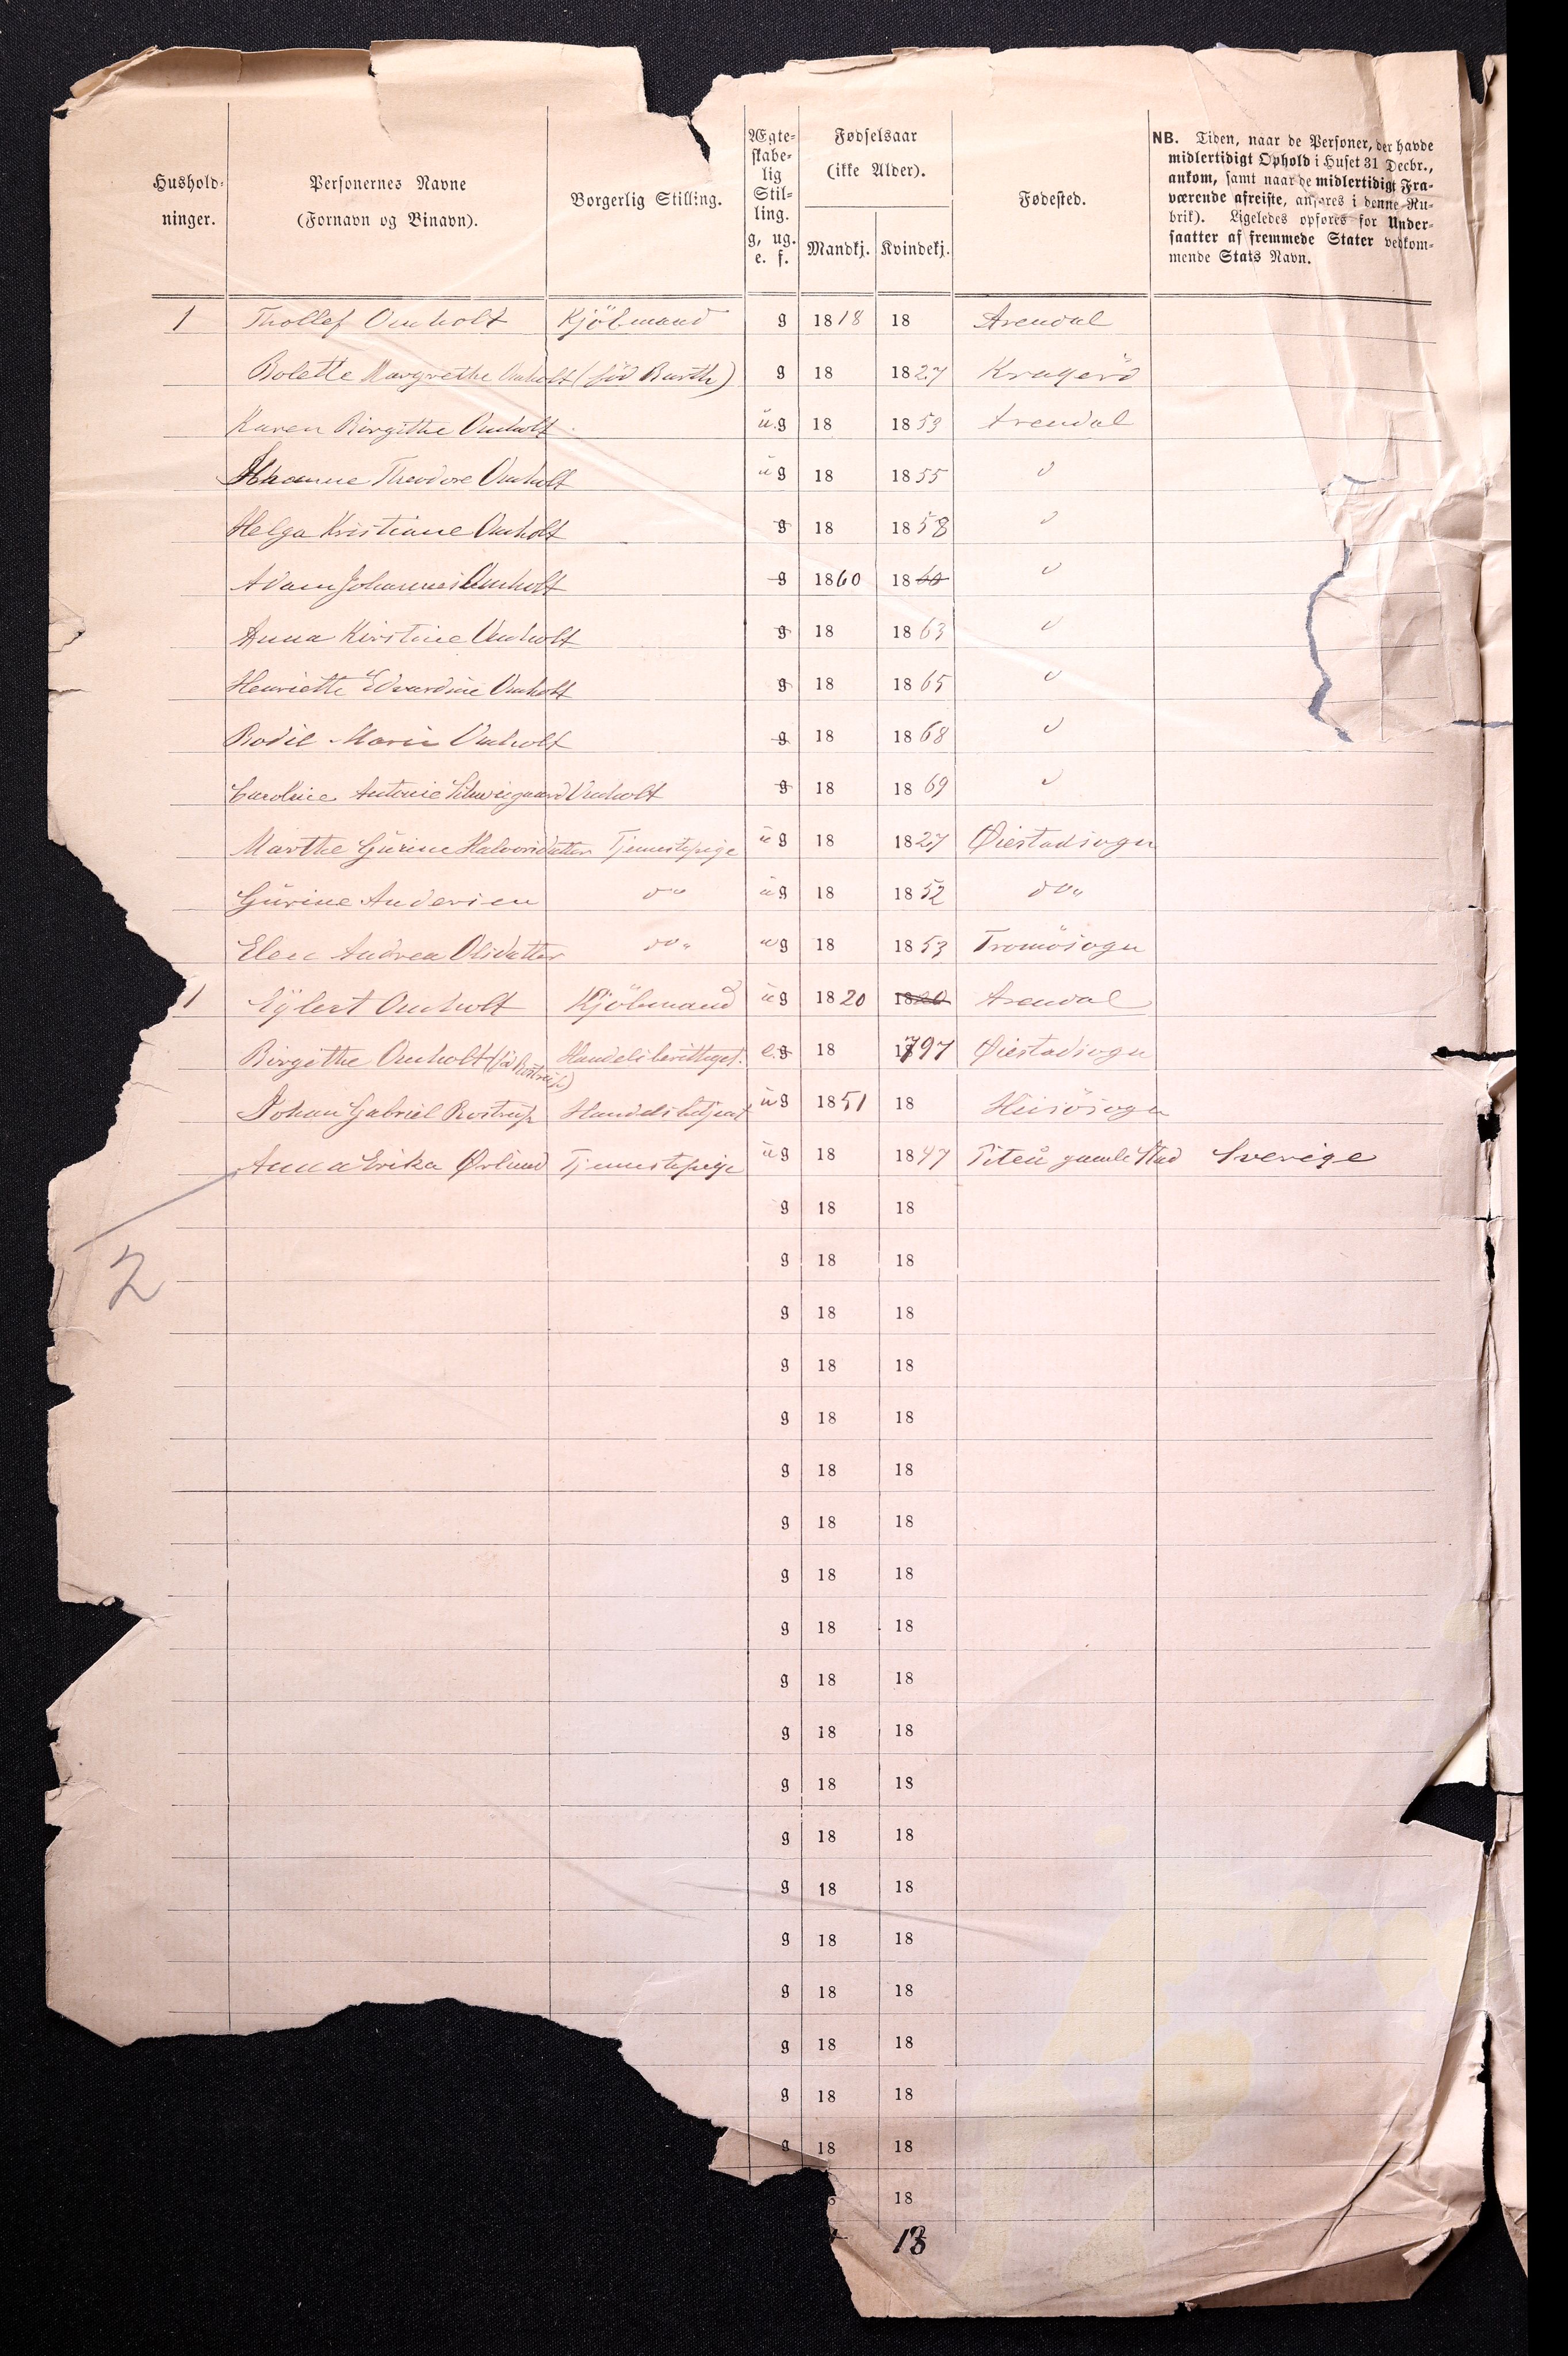 Hushold-
ninger.
Personernes Navne
(Fornavn og Binavn).
Borgerlig Stilling.
Ægte-
skabe-
lig
Stil-
ling.
g, ug.
e. f.
Fødselsaar
(ikke Alder).
Mandkj. Kvindekj.
Fødested.
NB. Tiden, naar de Personer, der havde
midlertidigt Ophold i Huset 31 Decbr.,
ankom, samt naar de midlertidigt Fra-
værende afreiste, anføres i denne Ru-
brik). Ligeledes opføres for Under-
saatter af fremmede Stater vedkom-
mende Stats Navn.
1 Thollef Omholt Kjöbmand g 1818 18 Arendal
Bolette Margrethe Omholt (född Barth) g 18 1827 Kragerö
Karen Birgithe Omholt ug 18 1853 Arendal
Johanne Theodore Omholt ug 18 1855 "
Helga Kristiane Omholt g 18 1858 "
Adam Johannes Omholt g 1860 1860 "
Anna Kirstine Omholt g 18 1863 "
Henriette Edvardine Omholt g 18 1865 "
Bodil Marie Omholt g 18 1868 "
Caroline Antonie Schweigaard Omholt g 18 1869 "
Marthe Gürine Halvorsdatter Tjenestepige ug 18 1827 Øiestadsogn
Gürine Andersen do ug 18 1852 do
Elen Andrea Olsdatter do ug 18 1853 Tromösogn
1 Eylert Omholt Kjöbmand ug 1820 1820 Arendal
Birgithe Omholt (fød Rostrup) Handelsberettiget. e.g 18 1797 Øiestadsogn
Johan Gabriel Rostrup Handelsbetjent ug 1851 18 Hisösogn
Anna Erika Ørlund Tjenestepige ug 18 1847 Piteå gamle Stad Sverige
g 18 18
2
g 18 18
g 18 18
g 18 18
g 18 18
g 18 18
g 18 18
g 18 18
g 18 18
g 18 18
g 18 18
g 18 18
g 18 18
g 18 18
g 18 18
g 18 18
g 18 18
g 18 18
g 18 18
18
13